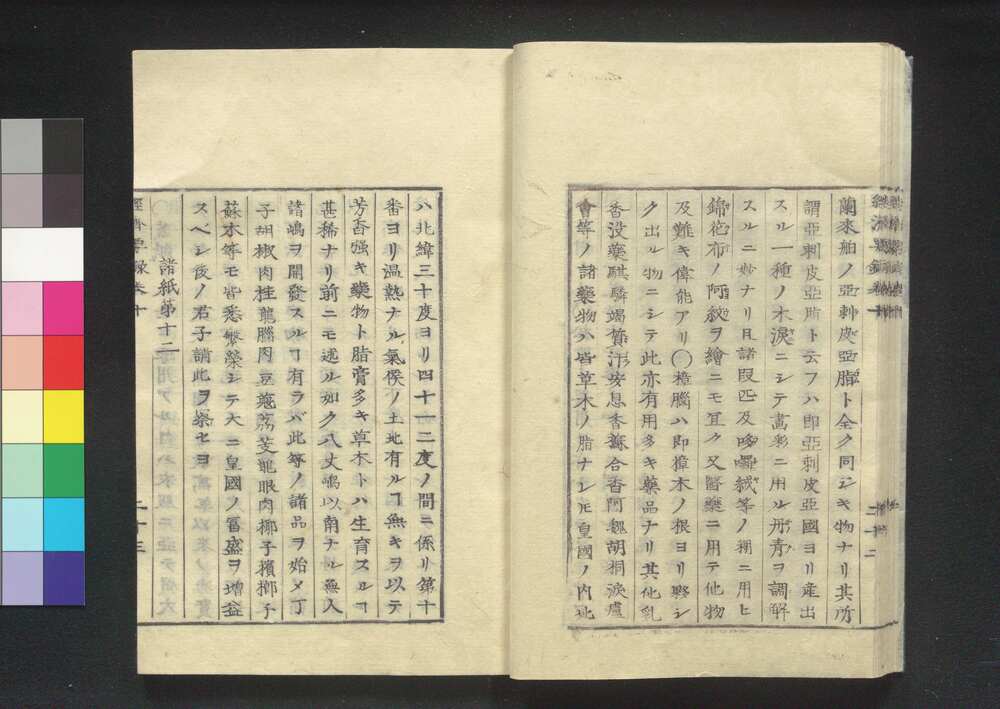 蘭來舶ノ亞刺皮亞脂ト全ク同ジキ物ナリ其所
謂亞刺皮亞脂ト云フハ即亞刺皮亞國ヨリ産出
スル一種ノ木涙ニシテ畵彩ニ用ル丹青ヲ調解
スルニ妙ナリ且諸段匹及哆囉絨等ノ糊ニ用ヒ
錦花布ノ阿紋ヲ繪ニモ宜ク又醫藥ニ用テ他物
及難キ偉能アリ〇樟腦ハ即樟木ノ根ヨリ熬シ
ク出ル物ニシテ此亦有用多キ藥品ナリ其他乳
香没藥騏驎竭質汗安息香蘇合香阿魏胡桐淚盧
會等ノ諸藥物ハ皆草木ノ脂ナレ𪜈皇國ノ内地
ハ北緯三十度ヨリ四十一二度ノ間ニ係リ第十
番ヨリ温熱ナル氣候ノ土地有ルヿ無キヲ以テ
芳香强キ藥物ト脂膏多キ草木トハ生育スルヿ
甚稀ナリ前ニモ述ル如ク八丈嶋以南ナル無人
諸嶋ヲ開發スルヿ有ラバ此等ノ諸品ヲ始メ丁
子胡椒肉桂龍腦肉豆蔲荔芰龍眼肉椰子檳榔子
蘇木等モ皆悉繁榮シテ大ニ皇國ノ冨盛ヲ増益
スベシ後ノ君子請此ヲ察セヨ
諸紙第十二
經濟要録卷十 二十三